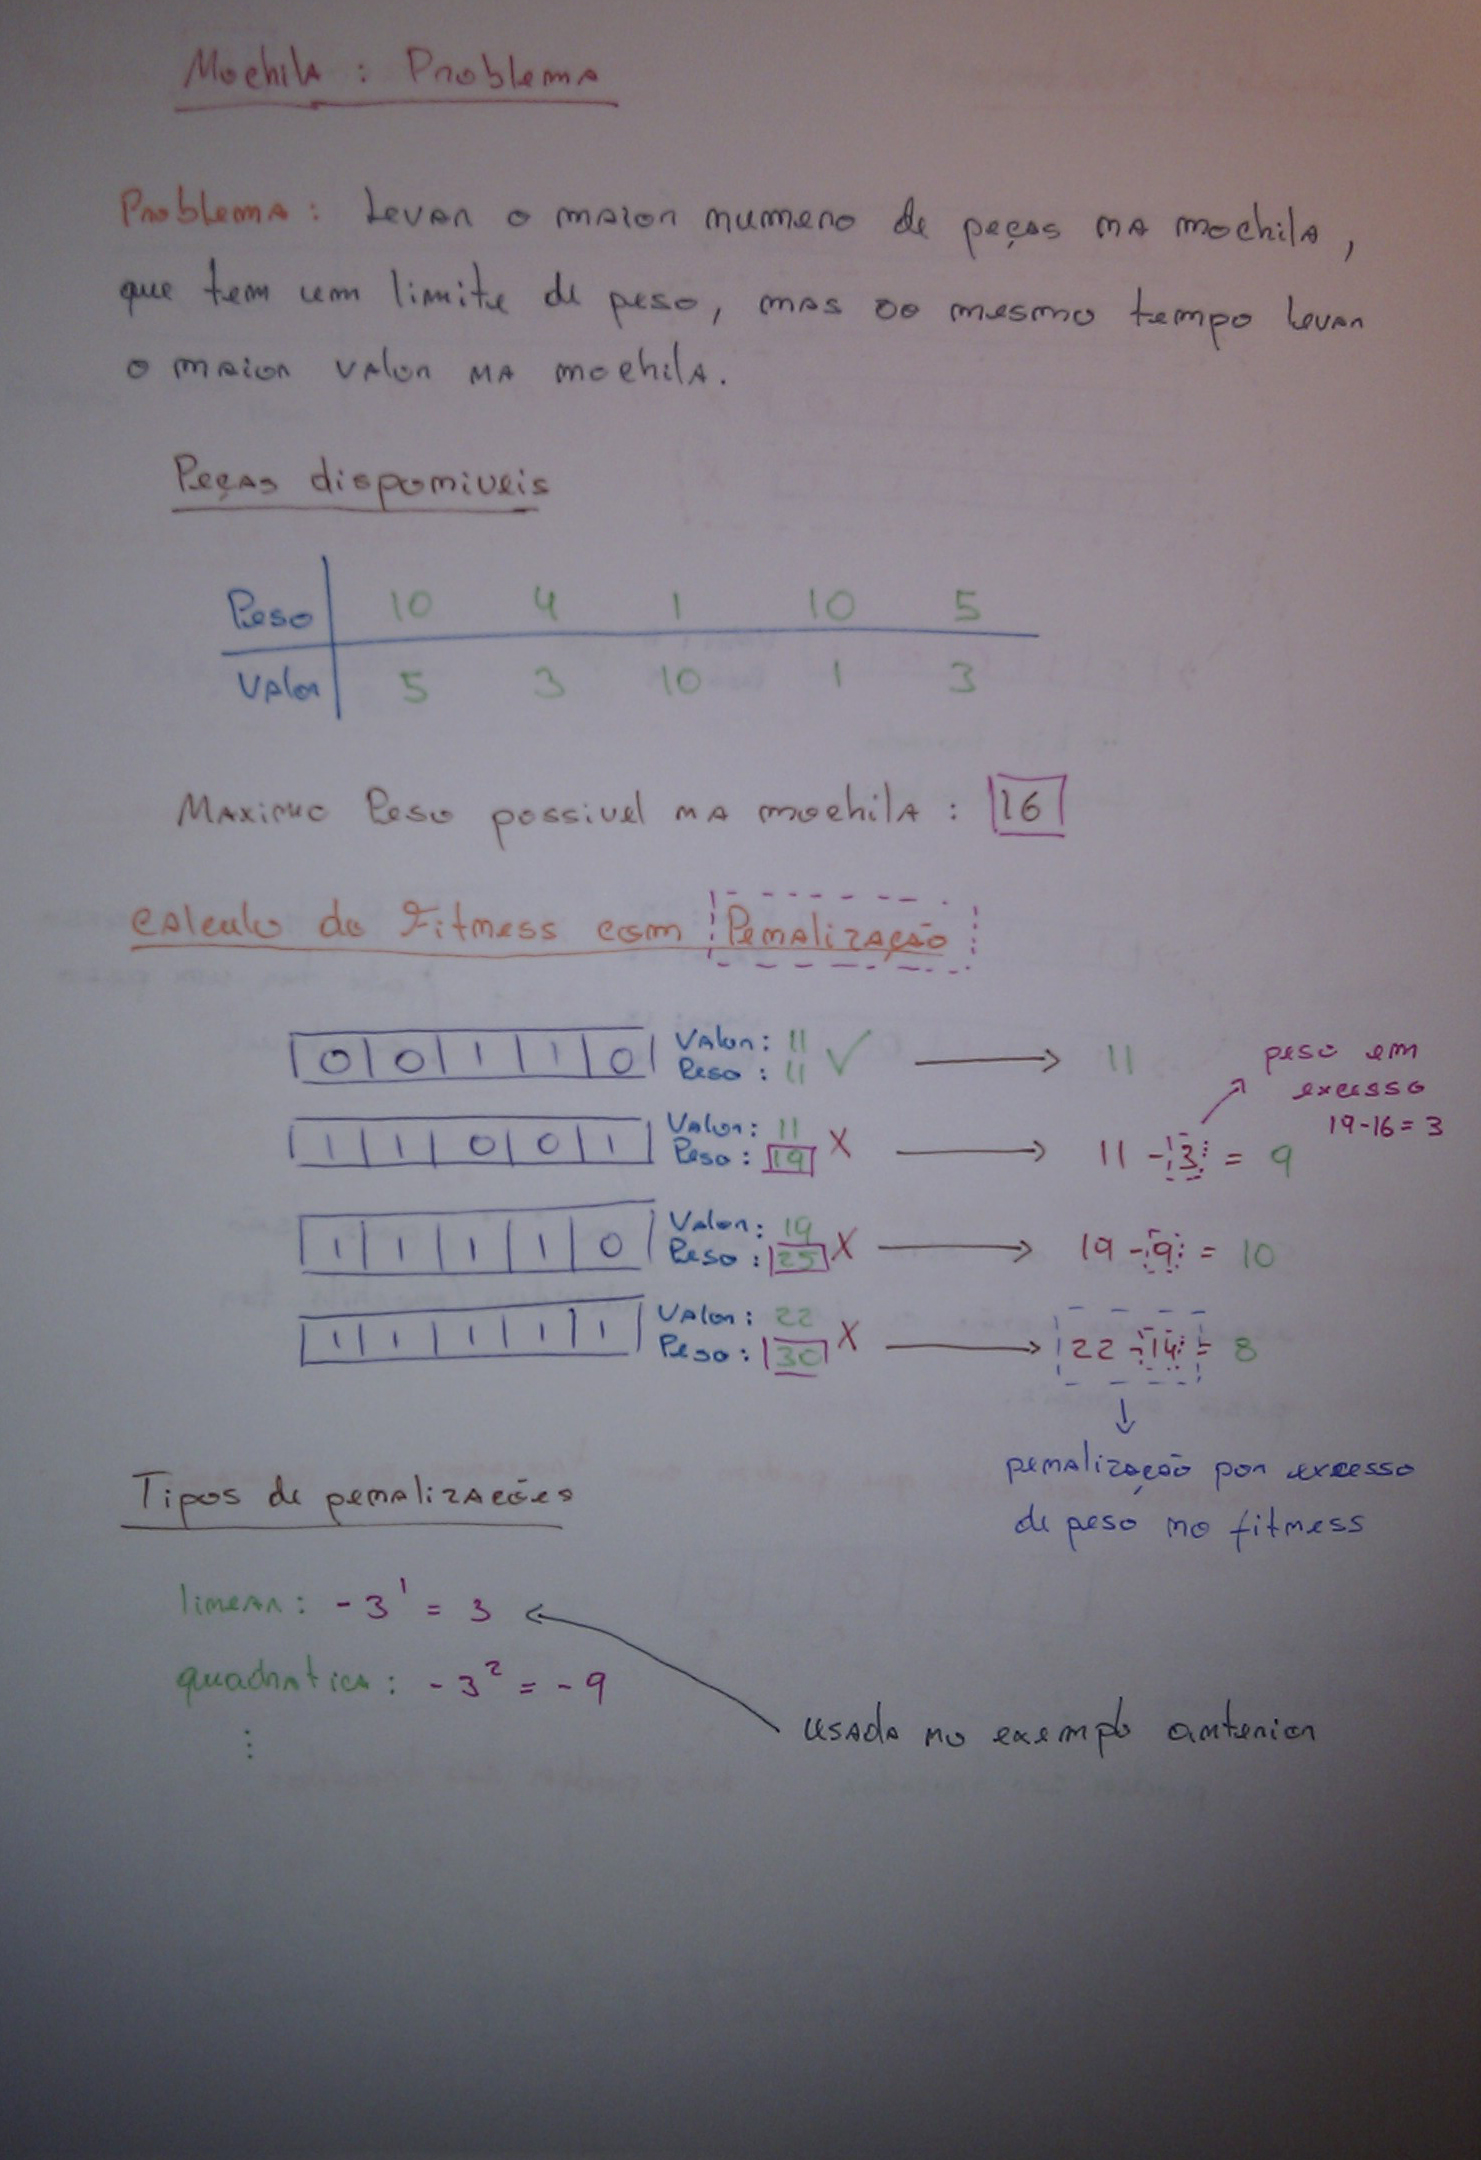 Mochila : Problema
Problema : Levar o maior numero de peças na mochila,
que tem um limite de peso, mas ao mesmo tempo levar
o maior valor na mochila.
Peças disponiveis
Peso 10 4 1 10 5
Valor 5 3 10 1 3
Maximo Peso possivel na mochila : 16
Calculo do Fitness com Penalização
0 0 1 1 0 Valor : 11
Peso : 11 ✓ → 11
peso em
excesso
19-16 = 3
1 1 0 0 1 Valor : 11
Peso : 19 X → 11 - 3 = 9
1 1 1 1 0 Valor : 19
Peso : 25 X → 19 - 9 = 10
1 1 1 1 1 Valor : 22
Peso : 30 X → 22 - 14 = 8
penalização por excesso
de peso no fitness
Tipos de penalizações
linear : -3¹ = 3
quadratica : -3² = -9
⋮
usada no exemplo anterior